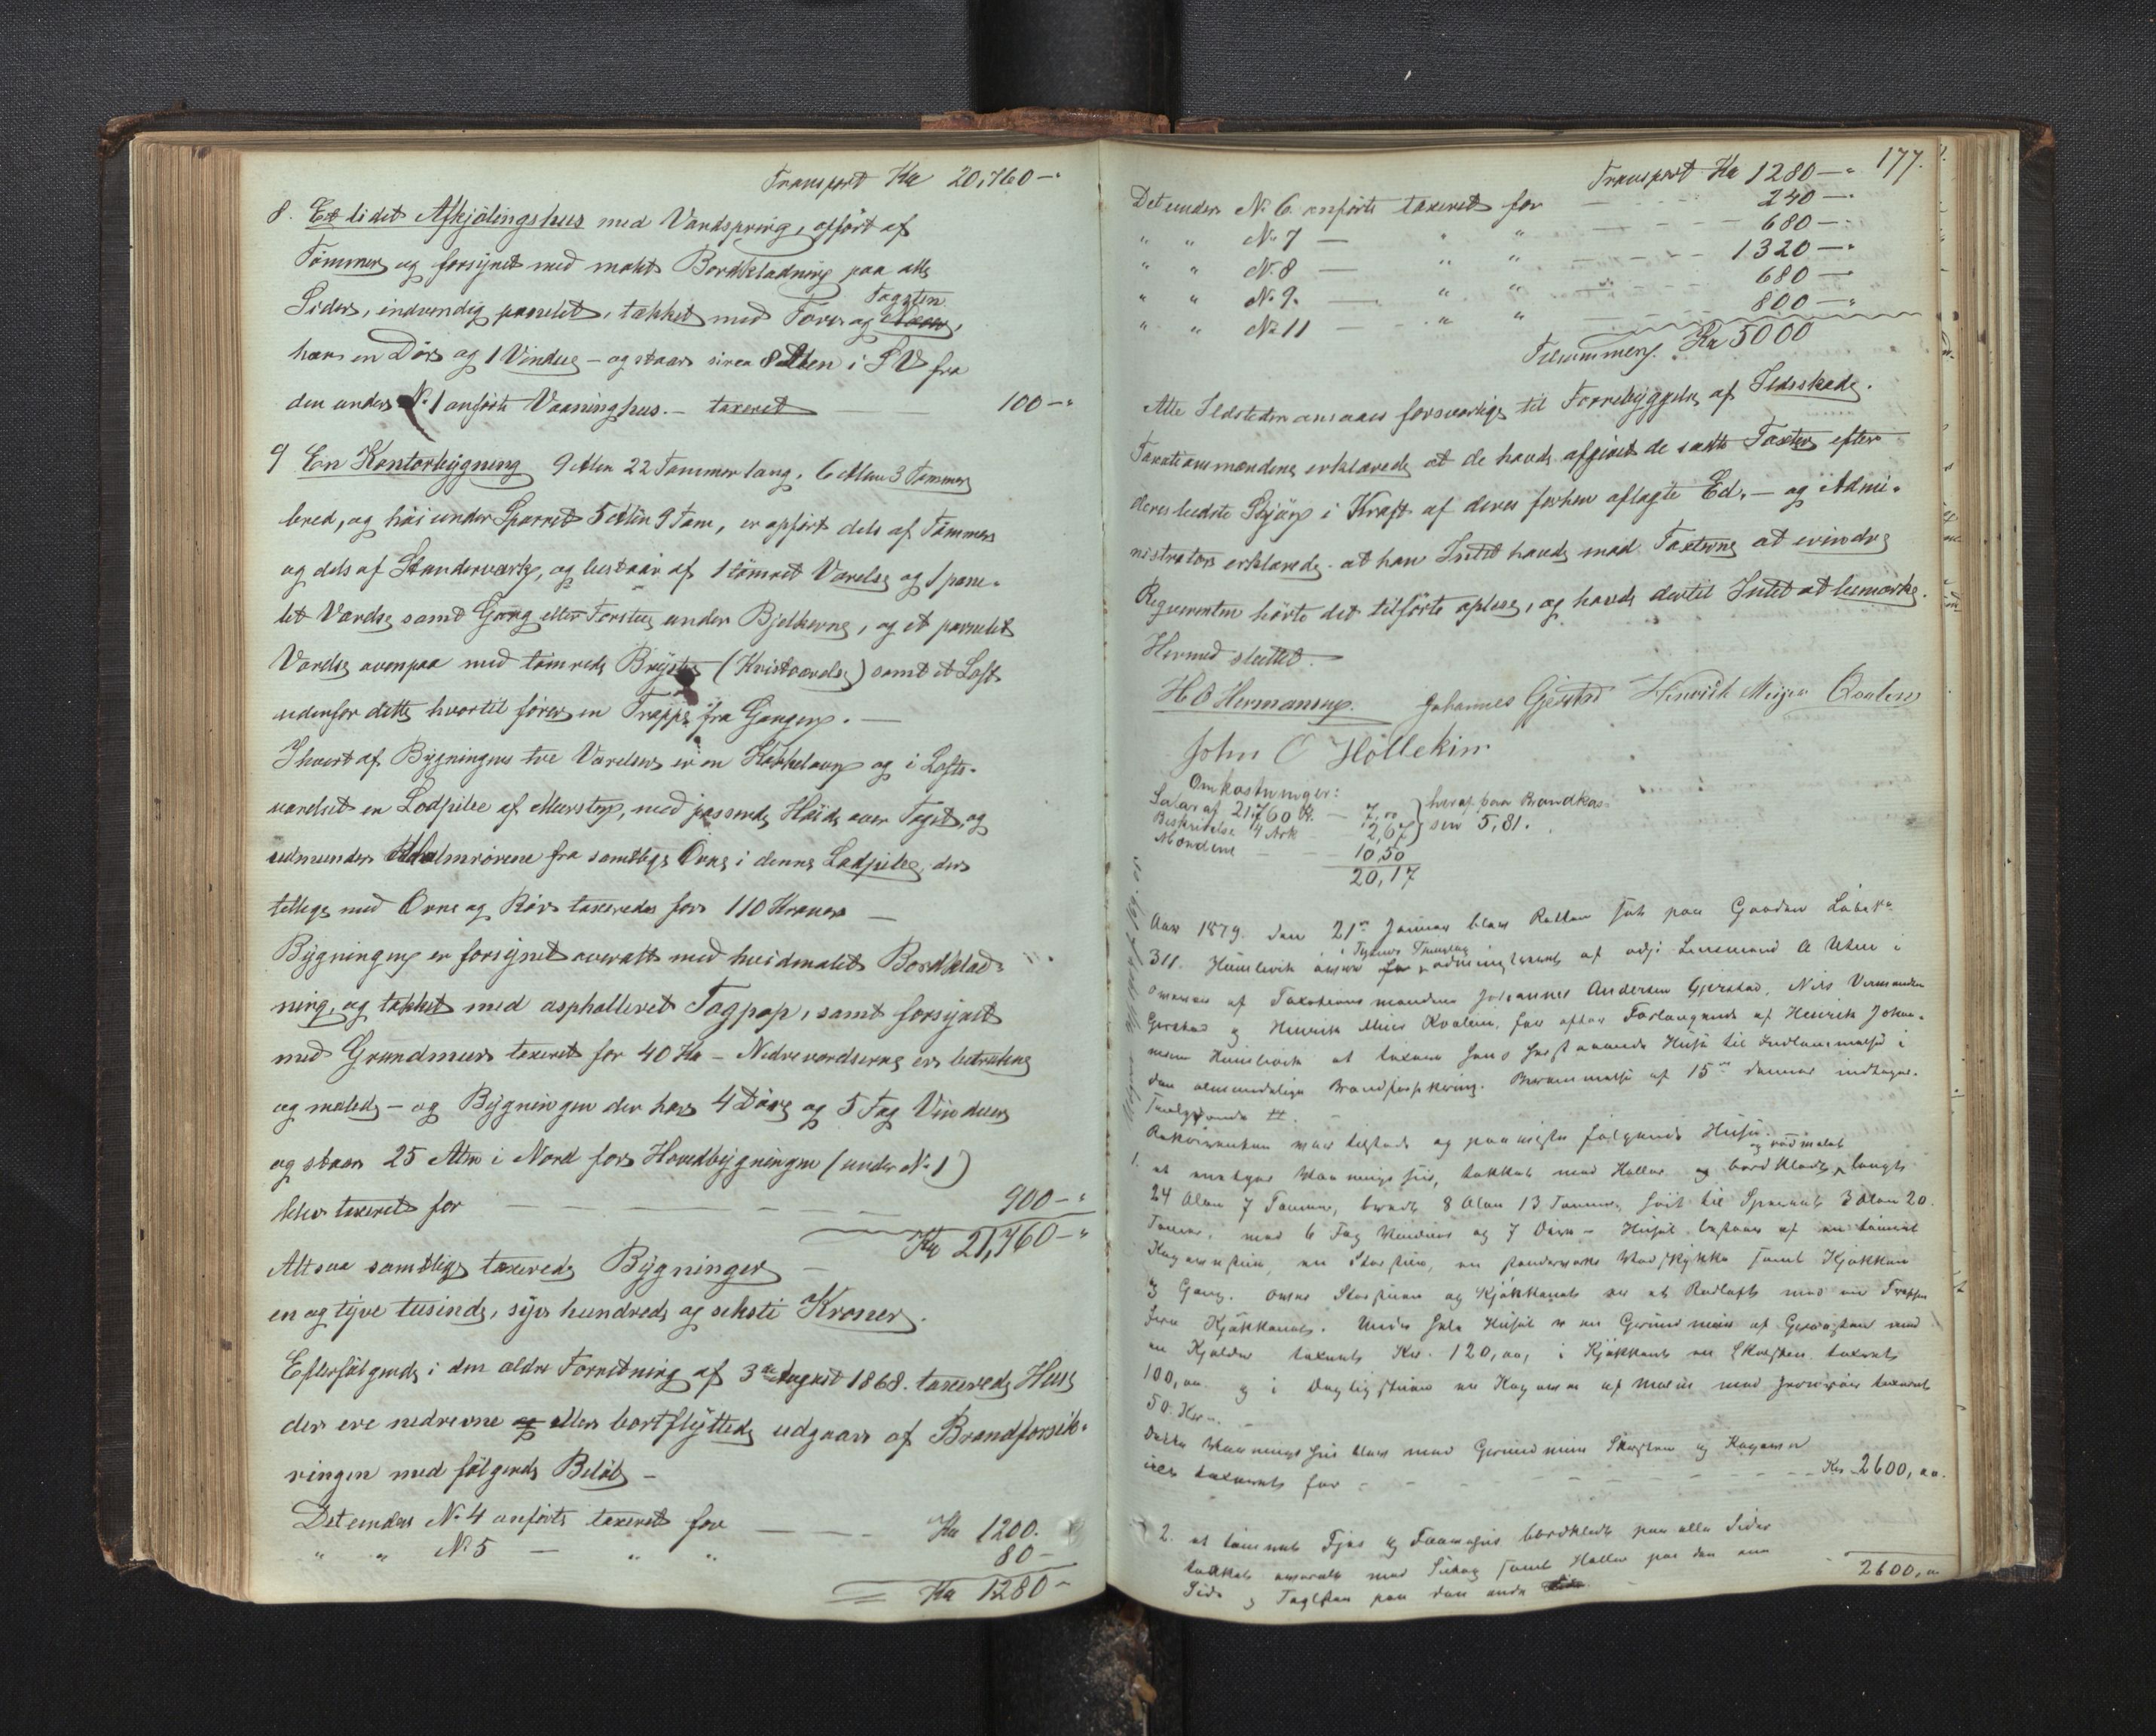 Transport Kr 20,760 —"
8. Et lidet Afkjölingshus med Vandspring, opfört af
Tømmer og forsynet med malet Bordklædning paa alle
Sider, indvendig panelet, tækket med Torv og Tagsten
har en Dör og 1 Vindue – og staar circa 8 Alen i SV fra
den under No 1 anförte Vaaningshus. – taxeret 100 —"
9 En Kontorbygning 9 Alen 22 Tommer lang, 6 Alen 3 Tommer
bred, og höi under Sparret 5 Alen 9 Tom, er opfört dels af Tömmer
og dels af Standerværk, og bestaar af 1 tömret Værelse og 1 pane-
let Værelse samt Gang eller Forstue under Bjelkerne, og et panelet
Værelse ovenpaa med tömrede Bryster (Kvistværelse) samt et Loft
udenfor dette hvortil förer en Trappe fra Gangen. —
I hvert af Bygningens tre Værelser er en Kakkelovn og i Lofts-
værelset en Lodpibe af Mursten, med passende Höide over Taget, og
udmunder Malmrörene fra samtlige Ovne i denne Lodpibe, der
tillige med Ovne og Rör taxeredes for 110 Kroner —
Bygningen er forsynet overalt med hvidmalet Bordklæd-
ning, og tækket med asphalteret Tagpap, samt forsynet
med Grundmur taxeret for 40 Kr – Nedreværelserne er betrukne
og malede – og Bygningen der har 4 Döre og 5 Fag Vinduer
og staar 25 Alen i Nord for Hovedbygningen (under No 1)
blev taxeret for — — — — — — 900 —"
Kr 21,760 —"
Altsaa samtlige taxerede Bygninger —
en og tyve tusinde, syv hundrede og seksti Kroner.
Efterfölgende i den ældre Forretning af 3de August 1868. taxerede Huse
der ere nedrevne og eller bortflyttede udgaar af Brandforsik-
ringen med fölgende Belöb —
Det under No 4 anförte taxeret for — — — Kr 1200.
" " No 5 — " " 80 –
Kr 1280 –
177.
Transport Kr 1280 —"
Det under No 6 anförte taxeret for — — — 240 —
" " No 7 — " " — — — 680 —
" " No 8 — " " — — — 1320 —"
" " No 9. " " — — — 680 —
" " No 11 — " " — — — 800 —"
Tilsammen. Kr 5000
Alle Ildsteder ansaaes forsvarlige til Forrebyggelse af Ildsskade.
Taxationsmændene erklærede at de havde afgivet de satte Taxter efter
deres bedste Skjön i Kraft af deres forhen aflagte Ed. – og Admi-
nistrator erklærede at han Intet havde mod Taxterne at erindre
Reqvirenten hörte det tilförte oplæse, og havde dertil Intet at bemærke.
Hermed sluttet.
H O Hermansen. Johannes Gjerstad Hinrich Meyer Qvalen
John O Höllekim
Omkostninger:
Salær af 21,760 Kr. – 7,00 } heraf paa Brandkas-
Beskrivelse 4 Ark 2,67 } sen 5,81.
Mændene — 10,50
20,17
Aar 1879. den 21de Januar blev Retten sat paa Gaarden Löbe No
311. Humlevik i Tysnes Thinglag administreret af edsv. Lensmand
overvær af Taxationsmændene Johannes Andersen Gjerstad, Nils
Gjerstad og Henrik Meier Kvalen, for efter Forlangende af Henrik Johan-
nesen Humlevik at taxere hans Huse til Indlemmelse i
den almindelige Brandforsikring. Berammelse af 15de Januar indtages.
Rekvirenten var tilstede og paaviste fölgende Huse.
1. et Vaaningshus, tækket med Heller og bordklædt og rödmalet, langt
24 Alen 7 Tommer, bredt 8 Alen 13 Tommer, höit til Sperret 3 Alen 20
Tommer, med 6 Fag Vinduer og 7 Döre – Huset bestaar af en tömret
en Storstue, en standerverks samt Kjökken
og Gang. over Storstuen og Kjökkenet er et Rodloft med en Trappe
fra Kjökkenet. Under hele Huset er en Grundmur af Graasten med
en Kjælder taxeret Kr. 120,00, i Kjökkenet en Skorsten taxeret
100,00 og i Dagligstuen en Kogeovn af Malm med Jernrör taxeret
50 Kr. –
Dette Vaaningshus blev med Grundmur Skorsten og Kogeovn
taxeret for – – – – – – Kr. 2600,00.
2. et tömret Fjös og bordklædt paa alle Sider
tækket samt Heller paa den ene
Side og Tagsten paa den anden
2600,00